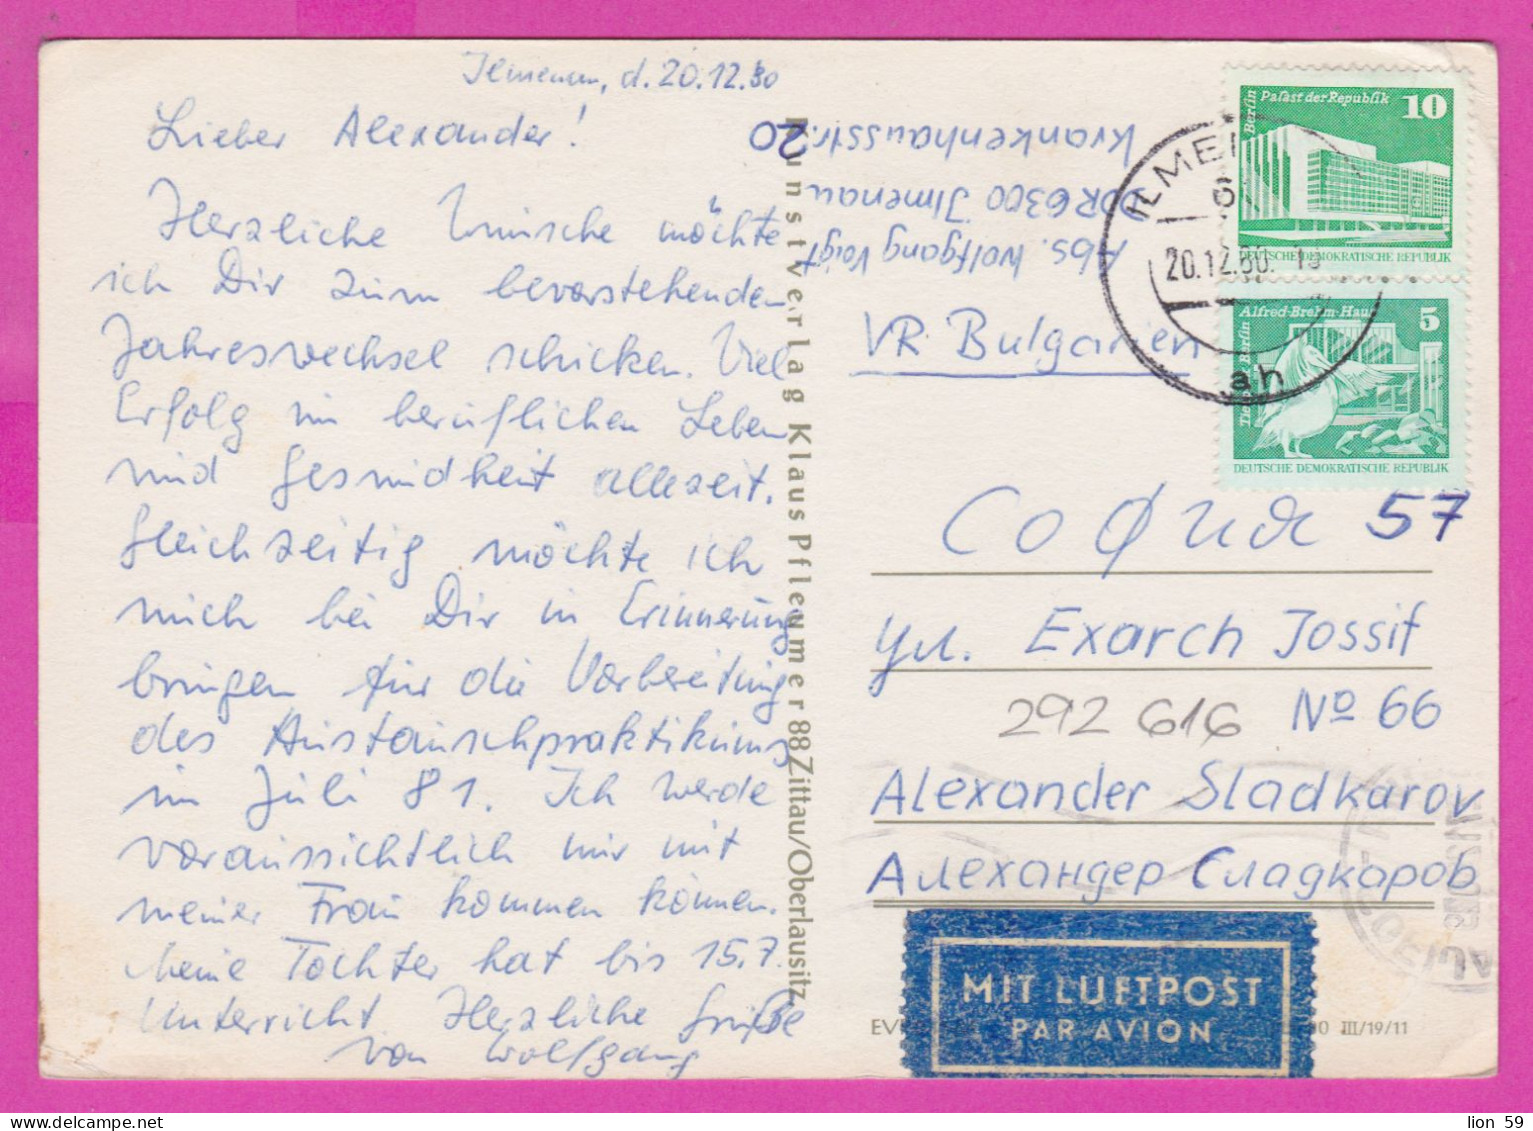 Ilmenau, d. 20.12.80
Lieber Alexander!
Herzliche Wünsche möchte
ich Dir zum bevorstehenden
Jahreswechsel schicken. Viel
Erfolg im beruflichen Leben
und Gesundheit allezeit.
Gleichzeitig möchte ich
mich bei Dir in Erinnerung
bringen für die Vorbereitung
des Austauschpraktikums
im Juli 81. Ich werde
voraussichtlich nur mit
meiner Frau kommen können.
Meine Tochter hat bis 15.7.
Unterricht. Herzliche Grüße
von Wolfgang
Kunstverlag Klaus Pfleumer 88 Zittau/Oberlausitz
Abs. Wolfgang Voigt
DDR 6300 Ilmenau
Krankenhausstr. 20
Berlin Palast der Republik 10
DEUTSCHE DEMOKRATISCHE REPUBLIK
Alfred-Brehm-Haus 5
Berlin
DEUTSCHE DEMOKRATISCHE REPUBLIK
ILMEN
6
20.12.80. 19
ah
VR Bulgarien
София 57
ул. Exarch Jossif
292 616 No 66
Alexander Sladkarov
Александер Сладкаров
MIT LUFTPOST
PAR AVION
III/19/11
lion 59